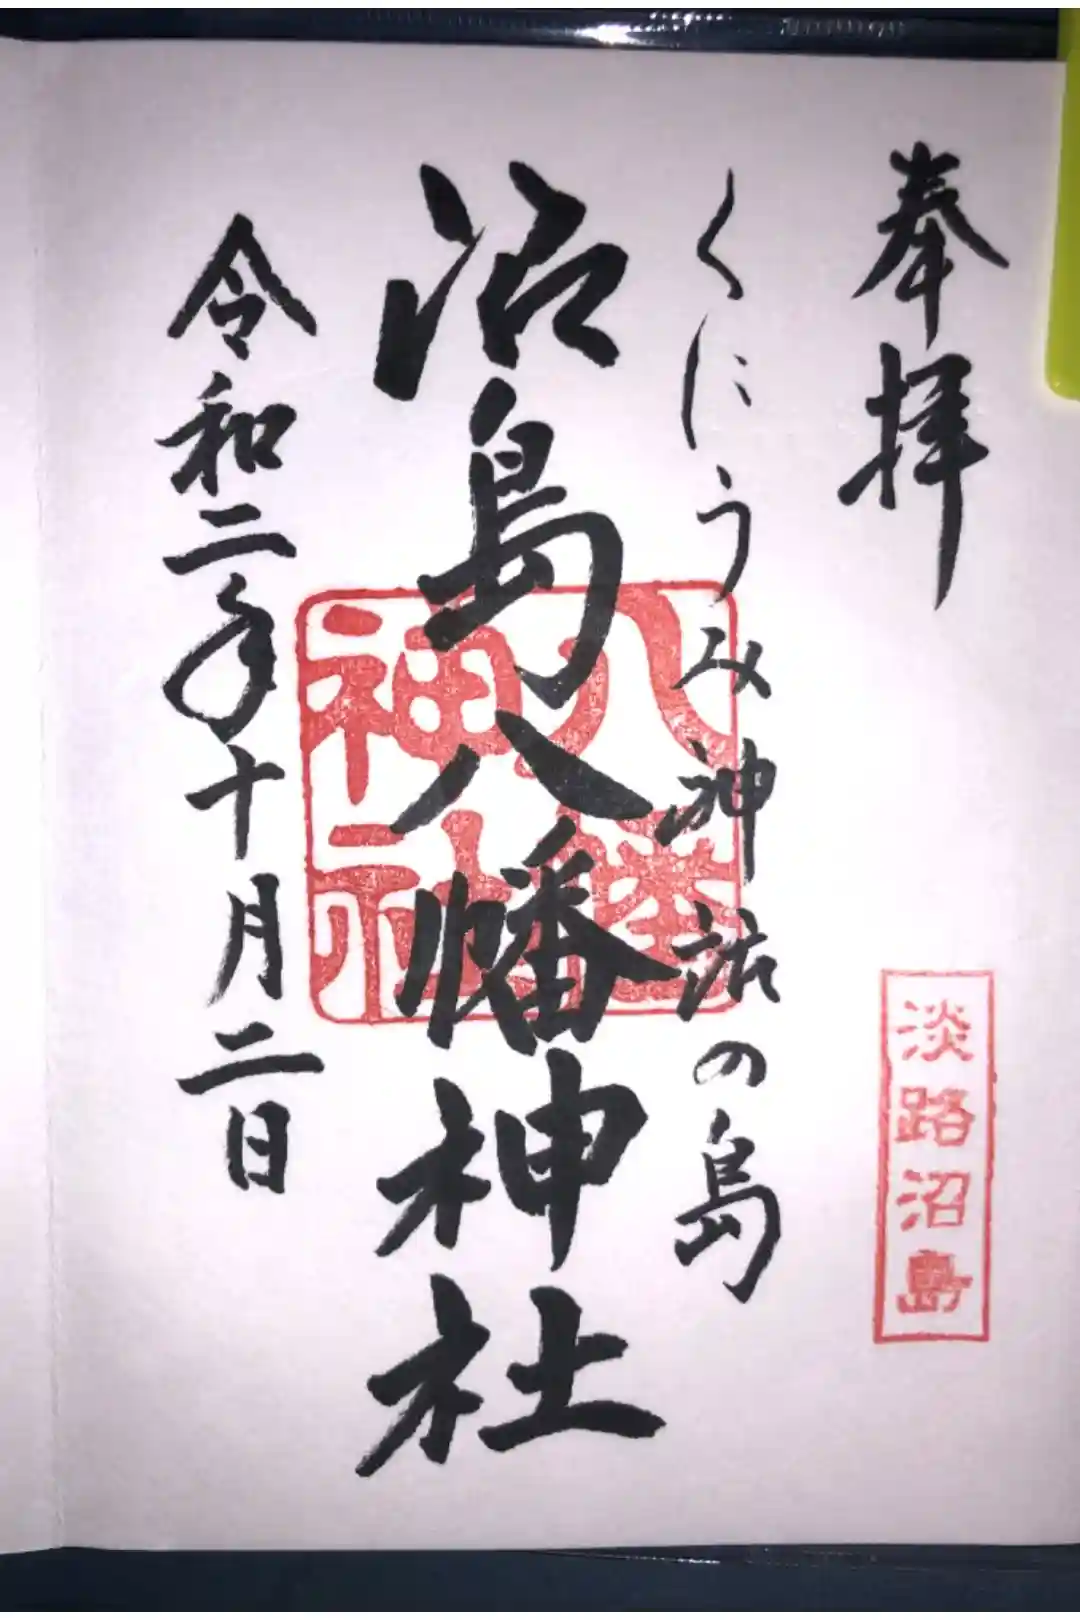 奉拝
淡路沼島
くにうみ神話の島
沼島八幡神社
八幡
神社
令和二年十月二日